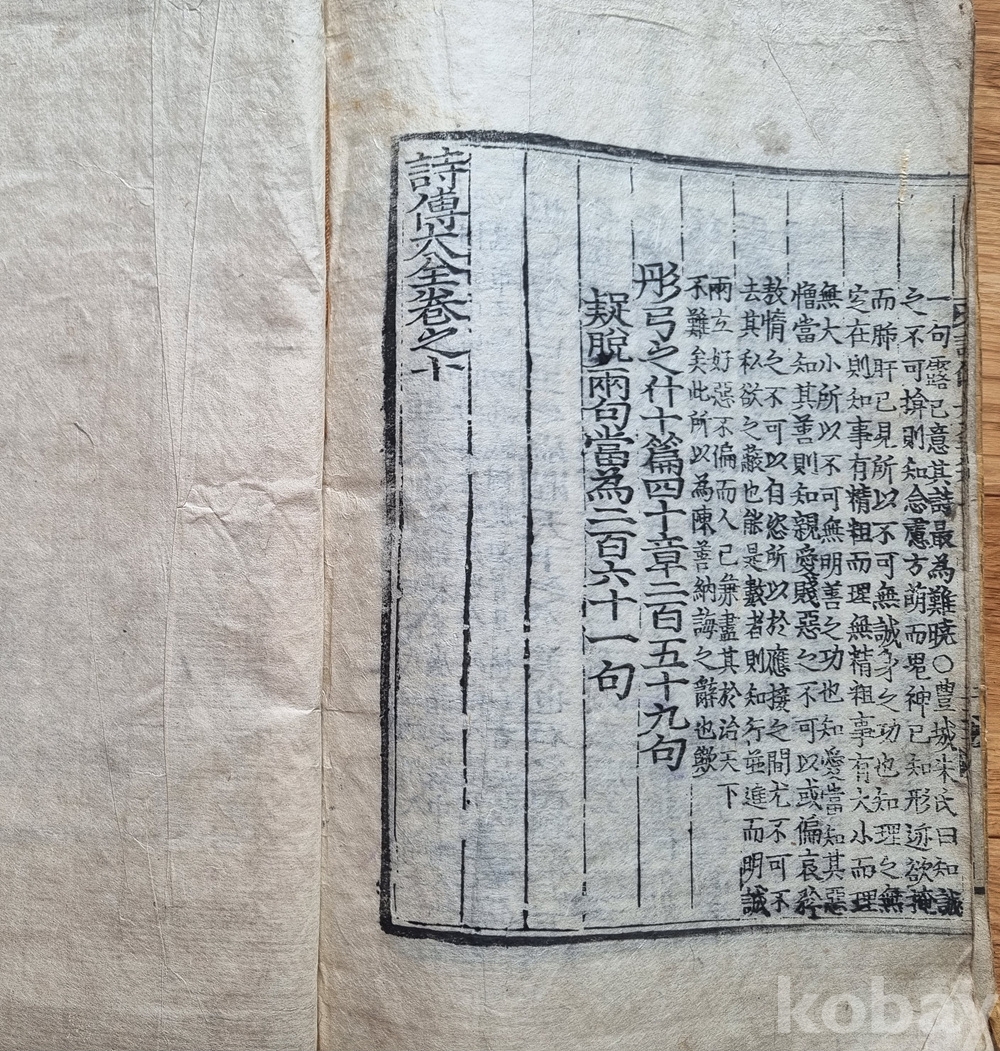 一句露己意其詩最為難曉○豊城朱氏曰知誠
之不可揜則知念慮方萌而鬼神已知形迹欲掩
而肺肝已見所以不可無誠身之功也知理之無
定在則知事有精粗而理無精粗事有大小而理
無大小所以不可無明善之功也知愛當知其惡
憎當知其善則知親愛賤惡之不可以或偏哀矜
敖惰之不可以自恣所以於應接之間尤不可不
去其私欲之蔽也能是數者則知行並進而明誠
兩立好惡不偏而人已兼盡其於治天下
不難矣此所以為陳善納誨之辭也歟
彤弓之什十篇四十章二百五十九句
疑脫兩句當為二百六十一句
詩傳大全卷之十
kobay